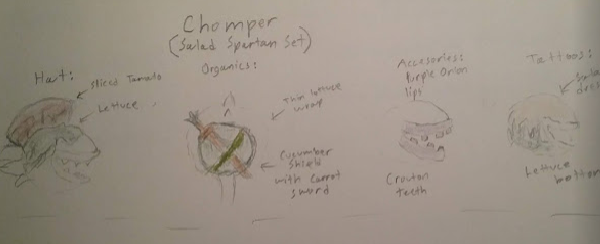 Chomper
(Salad Spartan Set)
Hat:
Sliced Tomato
Lettuce
Organics:
Thin lettuce
wrap
Cucumber
Shield
with Carrot
sword
Accesories:
Purple Onion
lips
Crouton
teeth
Tattoos:
Lettuce